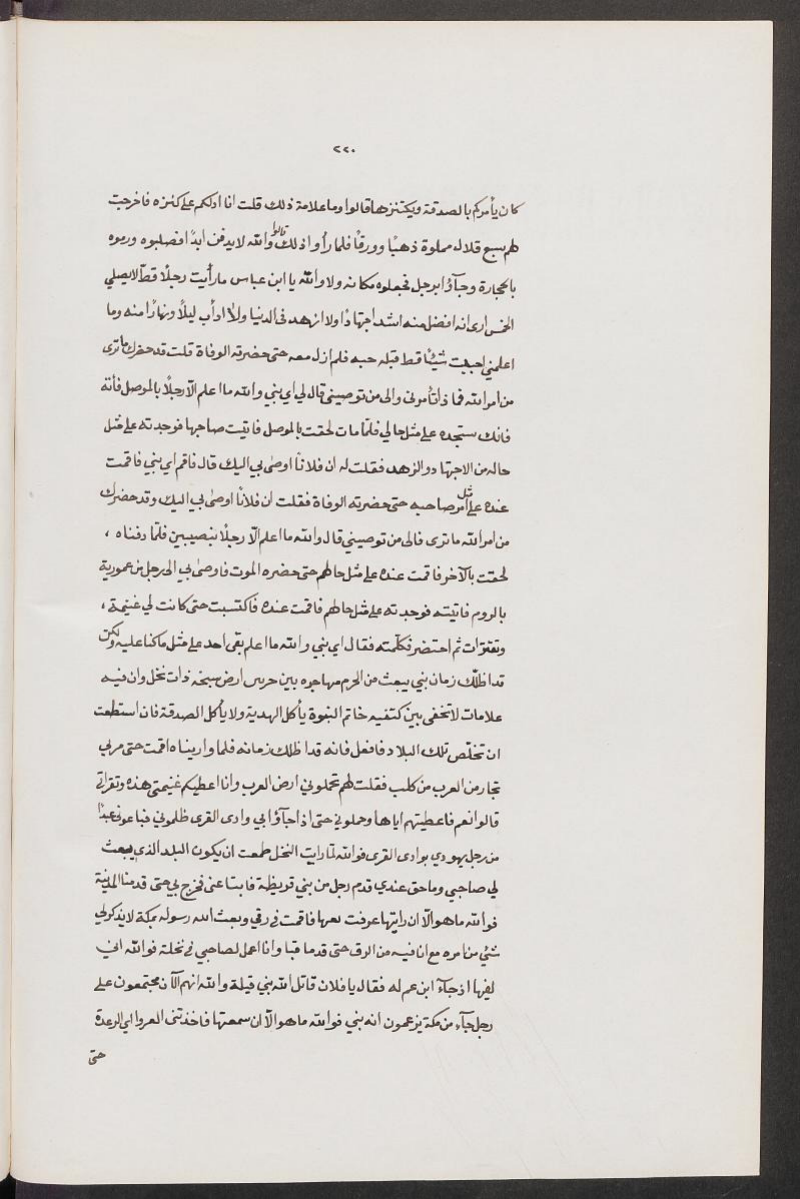 ٢٢٠
كان يأمركم بالصدقة ويكتنزها قالوا وما علامة ذلك قلت انا ادلكم على كنزه فاخرجت
لهم سبع قلال مملوة ذهبًا وورقًا فلما رأوا ذلك قالوا والله لا يدفن ابدًا فصلبوه ورموه
بالحجارة وجآؤا برجل فجعلوه مكانه ولا والله يا ابن عباس ما رأيت رجلًا قطّ لا يصلي
الخمس ارى انه افضل منه اشد اجتهادًا ولا ازهد في الدنيا ولا ادأب ليلًا ونهارًا منه وما
اعلمني احببت شيئًا قط قبله حبه فلم ازل معه حتى حضرته الوفاة قلت قد حضرك ما ترى
من امر الله فماذا تأمرني والى من توصيني قال لي اي بني والله ما اعلم الّا رجلًا بالموصل فأته
فانك ستجده على مثل حالي فلمّا مات لحقت بالموصل فاتيت صاحبها فوجدته على مثل
حاله من الاجتهاد والزهد فقلت له ان فلانًا اوصى بي اليك قال فاقم اي بني فاقمت
عنده على مثل امر صاحبه حتى حضرته الوفاة فقلت ان فلانًا اوصى بي اليك وقد حضرك
من امر الله ما ترى فالى من توصيني قال والله ما اعلم الّا رجلًا بنصيبين فلمّا دفناه ،
لحقت بالآخر فاقمت عنده على مثل حالهم حتى حضره الموت فاوصى بي الى رجل من عمورية
بالروم فاتيته فوجدته على مثل حالهم فاقمت عنده فاكتسبت حتى كانت لي غنيمة ،
وبقرات ثم احتضر فكلّمته فقال اي بني والله ما اعلم بقى احد على مثل ما كنا عليه ولكن
قد اظلّك زمان بني يبعث من الحرم مهاجره بين حرس ارض سبخه ذات نخل وان فيه
علامات لا تخفى بين كتفيه خاتم النبوة يأكل الهدية ولا يأكل الصدقة فان استطعت
ان تخلّص تلك البلاد فافعل فانه قد اظلك زمانه فلما واريناه اقمت حتى مر بي
تجار من العرب من كلب فقلت لهم تحملوني ارض العرب وانا اعطيكم غنيمتي هذه وبقراتي
قالوا نعم فاعطيتهم اياها وحملوني حتى اذا جآؤا بي وادى القرى ظلموني فباعوني عبدًا
من رجل يهودي بوادى القرى فوالله لما رايت النخل طمعت ان يكون البلد الذي يبعث
لي صاحبي وما حق عندي قدم رجل من بني قريظة فابتاعني فخرج بي حتى قدمنا المدينة
فوالله ما هو الّا ان رايتها عرفت نعتها فاقمت في رقي وبعث الله رسوله بمكة لا يذكر لي
شئي من امره مع انا فيه من الرق حتى قدم قبا وانا اعمل لصاحبي في نخلة فوالله اني
لفيها اذ جآء ابن عم له فقال يا فلان قاتل الله بني قيلة والله انهم الآن مجتمعون على
رجل جآء من مكة يزعمون انه بني فوالله ما هو الّا ان سمعتها فاخذتني العروا اي الرعدة
حتى